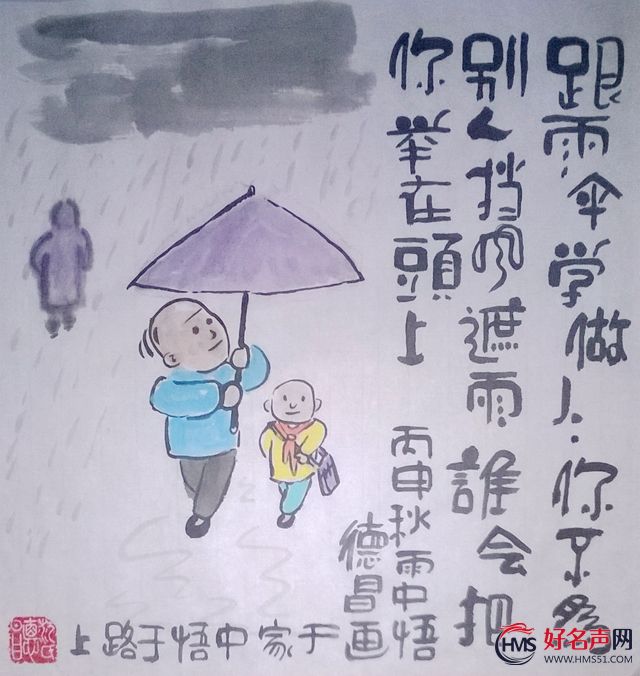 跟雨伞学做人.你不為
别人挡风遮雨誰会把
你举在頭上
丙申秋雨中悟
德昌画
于家中悟于路上
HMS 好名声网
WWW.HMS51.COM